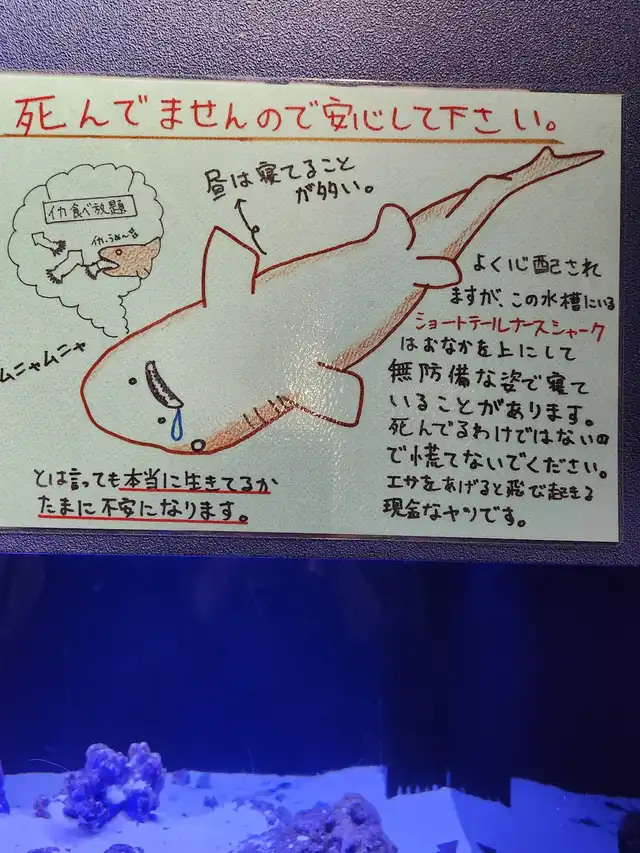 死んでませんので安心して下さい。
昼は寝てること
が多い。
イカ食べ放題
イカ、うめ〜な
ムニャムニャ
よく心配され
ますが、この水槽にいる
ショートテールナースシャーク
はおなかを上にして
無防備な姿で寝て
いることがあります。
死んでるわけではないの
で慌てないでください。
エサをあげると飛び起きる
現金なヤツです。
とは言っても本当に生きてるか
たまに不安になります。